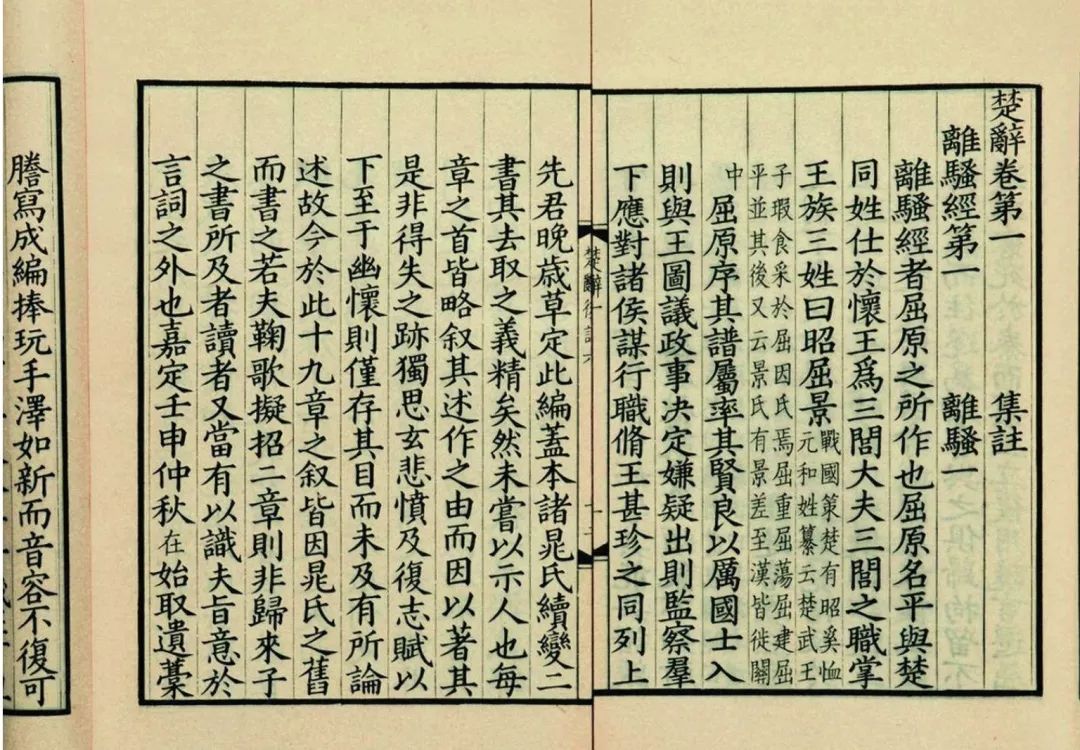 楚辭卷第一　集註
離騷經第一　離騷一
離騷經者屈原之所作也屈原名平與楚
同姓仕於懷王爲三閭大夫三閭之職掌
王族三姓曰昭屈景
戰國策楚有昭奚恤
元和姓纂云楚武王
子瑕食采於屈因氏焉屈重屈蕩屈建屈
平並其後又云景氏有景差至漢皆徙關
中
屈原序其譜屬率其賢良以厲國士入
則與王圖議政事决定嫌疑出則監察羣
下應對諸侯謀行職脩王甚珍之同列上
楚辭
先君晚歲草定此編蓋本諸晁氏續變二
書其去取之義精矣然未嘗以示人也每
章之首皆略叙其述作之由而因以著其
是非得失之跡獨思玄悲憤及復志賦以
下至于幽懷則僅存其目而未及有所論
述故今於此十九章之叙皆因晁氏之舊
而書之若夫鞠歌擬招二章則非歸來子
之書所及者讀者又當有以識夫旨意於
言詞之外也嘉定壬申仲秋在始取遺藁
謄寫成編捧玩手澤如新而音容不復可